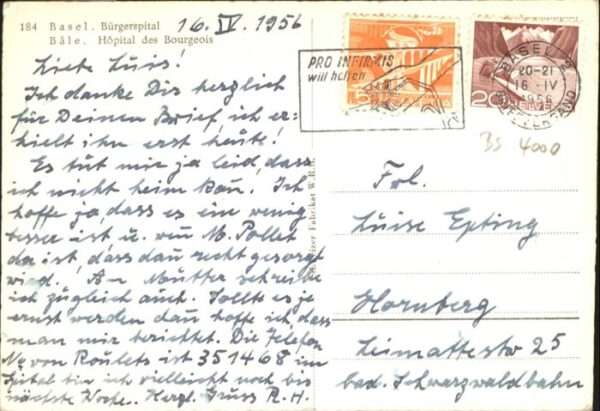 184 Basel. Bürgerspital
Bâle. Hôpital des Bourgeois
16. IV. 1956
Liebe Luise!
Ich danke Dir herzlich
für Deinen Brief, ich er-
hielt ihn erst heute!
Es tut mir ja leid, dass
ich nicht heim kan. Ich
hoffe ja dass es ein wenig
besser ist u. wen M. Pollet
da ist, dass dan recht gesorgt
wird. An Mutter schreibe
ich zugleich auch. Sollte es je
ernst werden dan hoffe ich, dass
man mir berichtet. Die Telefon
No von Roulets ist 351468 im
Spital bin ich vielleicht noch bis
nächste Woche. Herzl. Gruss R. H.
PRO INFIRMIS
will helfen
BASEL 2
20-21
16. IV
1956
BRIEFVERSAND
5
20
BS 4000
Frl.
Luise Epting
Hornberg
Leimattestr 25
bad. Schwarzwaldbahn